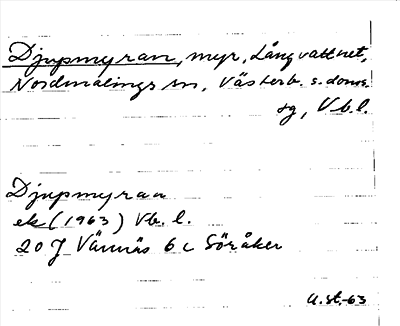 Djupmyran, myr, Långvattnet,
Nordmalings sn, Västerb. s. doms.
sg, Vb. l.
Djupmyran
ek (1963) Vb. l.
20 J Vännäs 6 c Söråker
U.st.-63